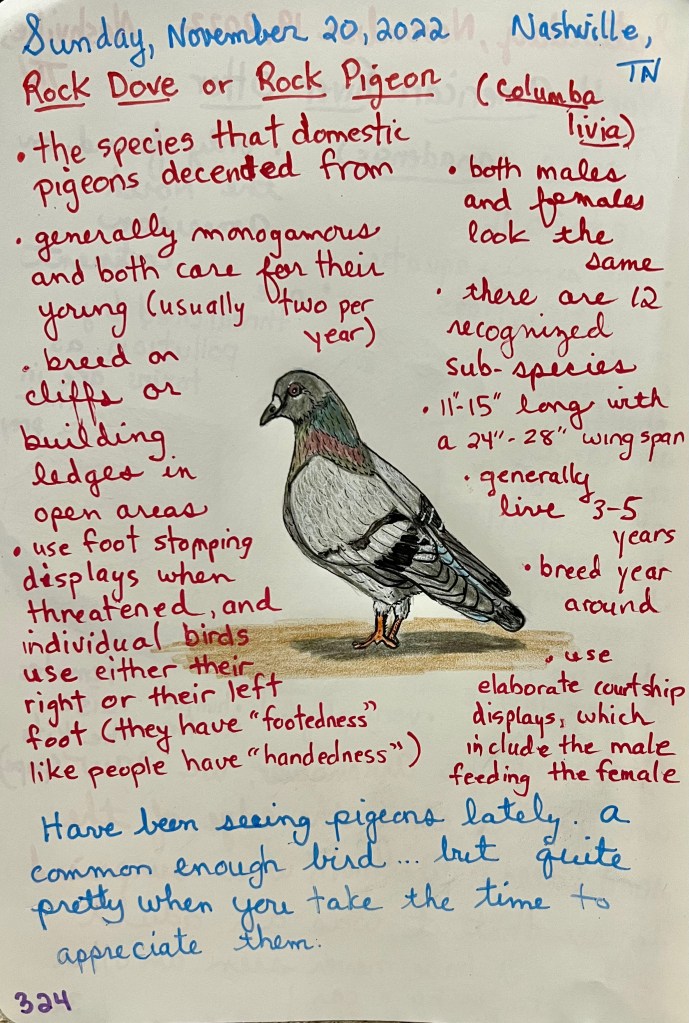 Sunday, November 20, 2022 Nashville, TN
Rock Dove or Rock Pigeon (Columba livia)
• the species that domestic
pigeons decented from
• generally monogamous
and both care for their
young (usually two per
year)
• breed on
cliffs or
building
ledges in
open areas
• use foot stomping
displays when
threatened, and
individual birds
use either their
right or their left
foot (they have "footedness"
like people have "handedness")
• both males
and females
look the
same
• there are 12
recognized
sub-species
• 11"-15" long with
a 24"-28" wing span
• generally
live 3-5
years
• breed year
around
• use
elaborate courtship
displays, which
include the male
feeding the female
Have been seeing pigeons lately. a
common enough bird... but quite
pretty when you take the time to
appreciate them.
324